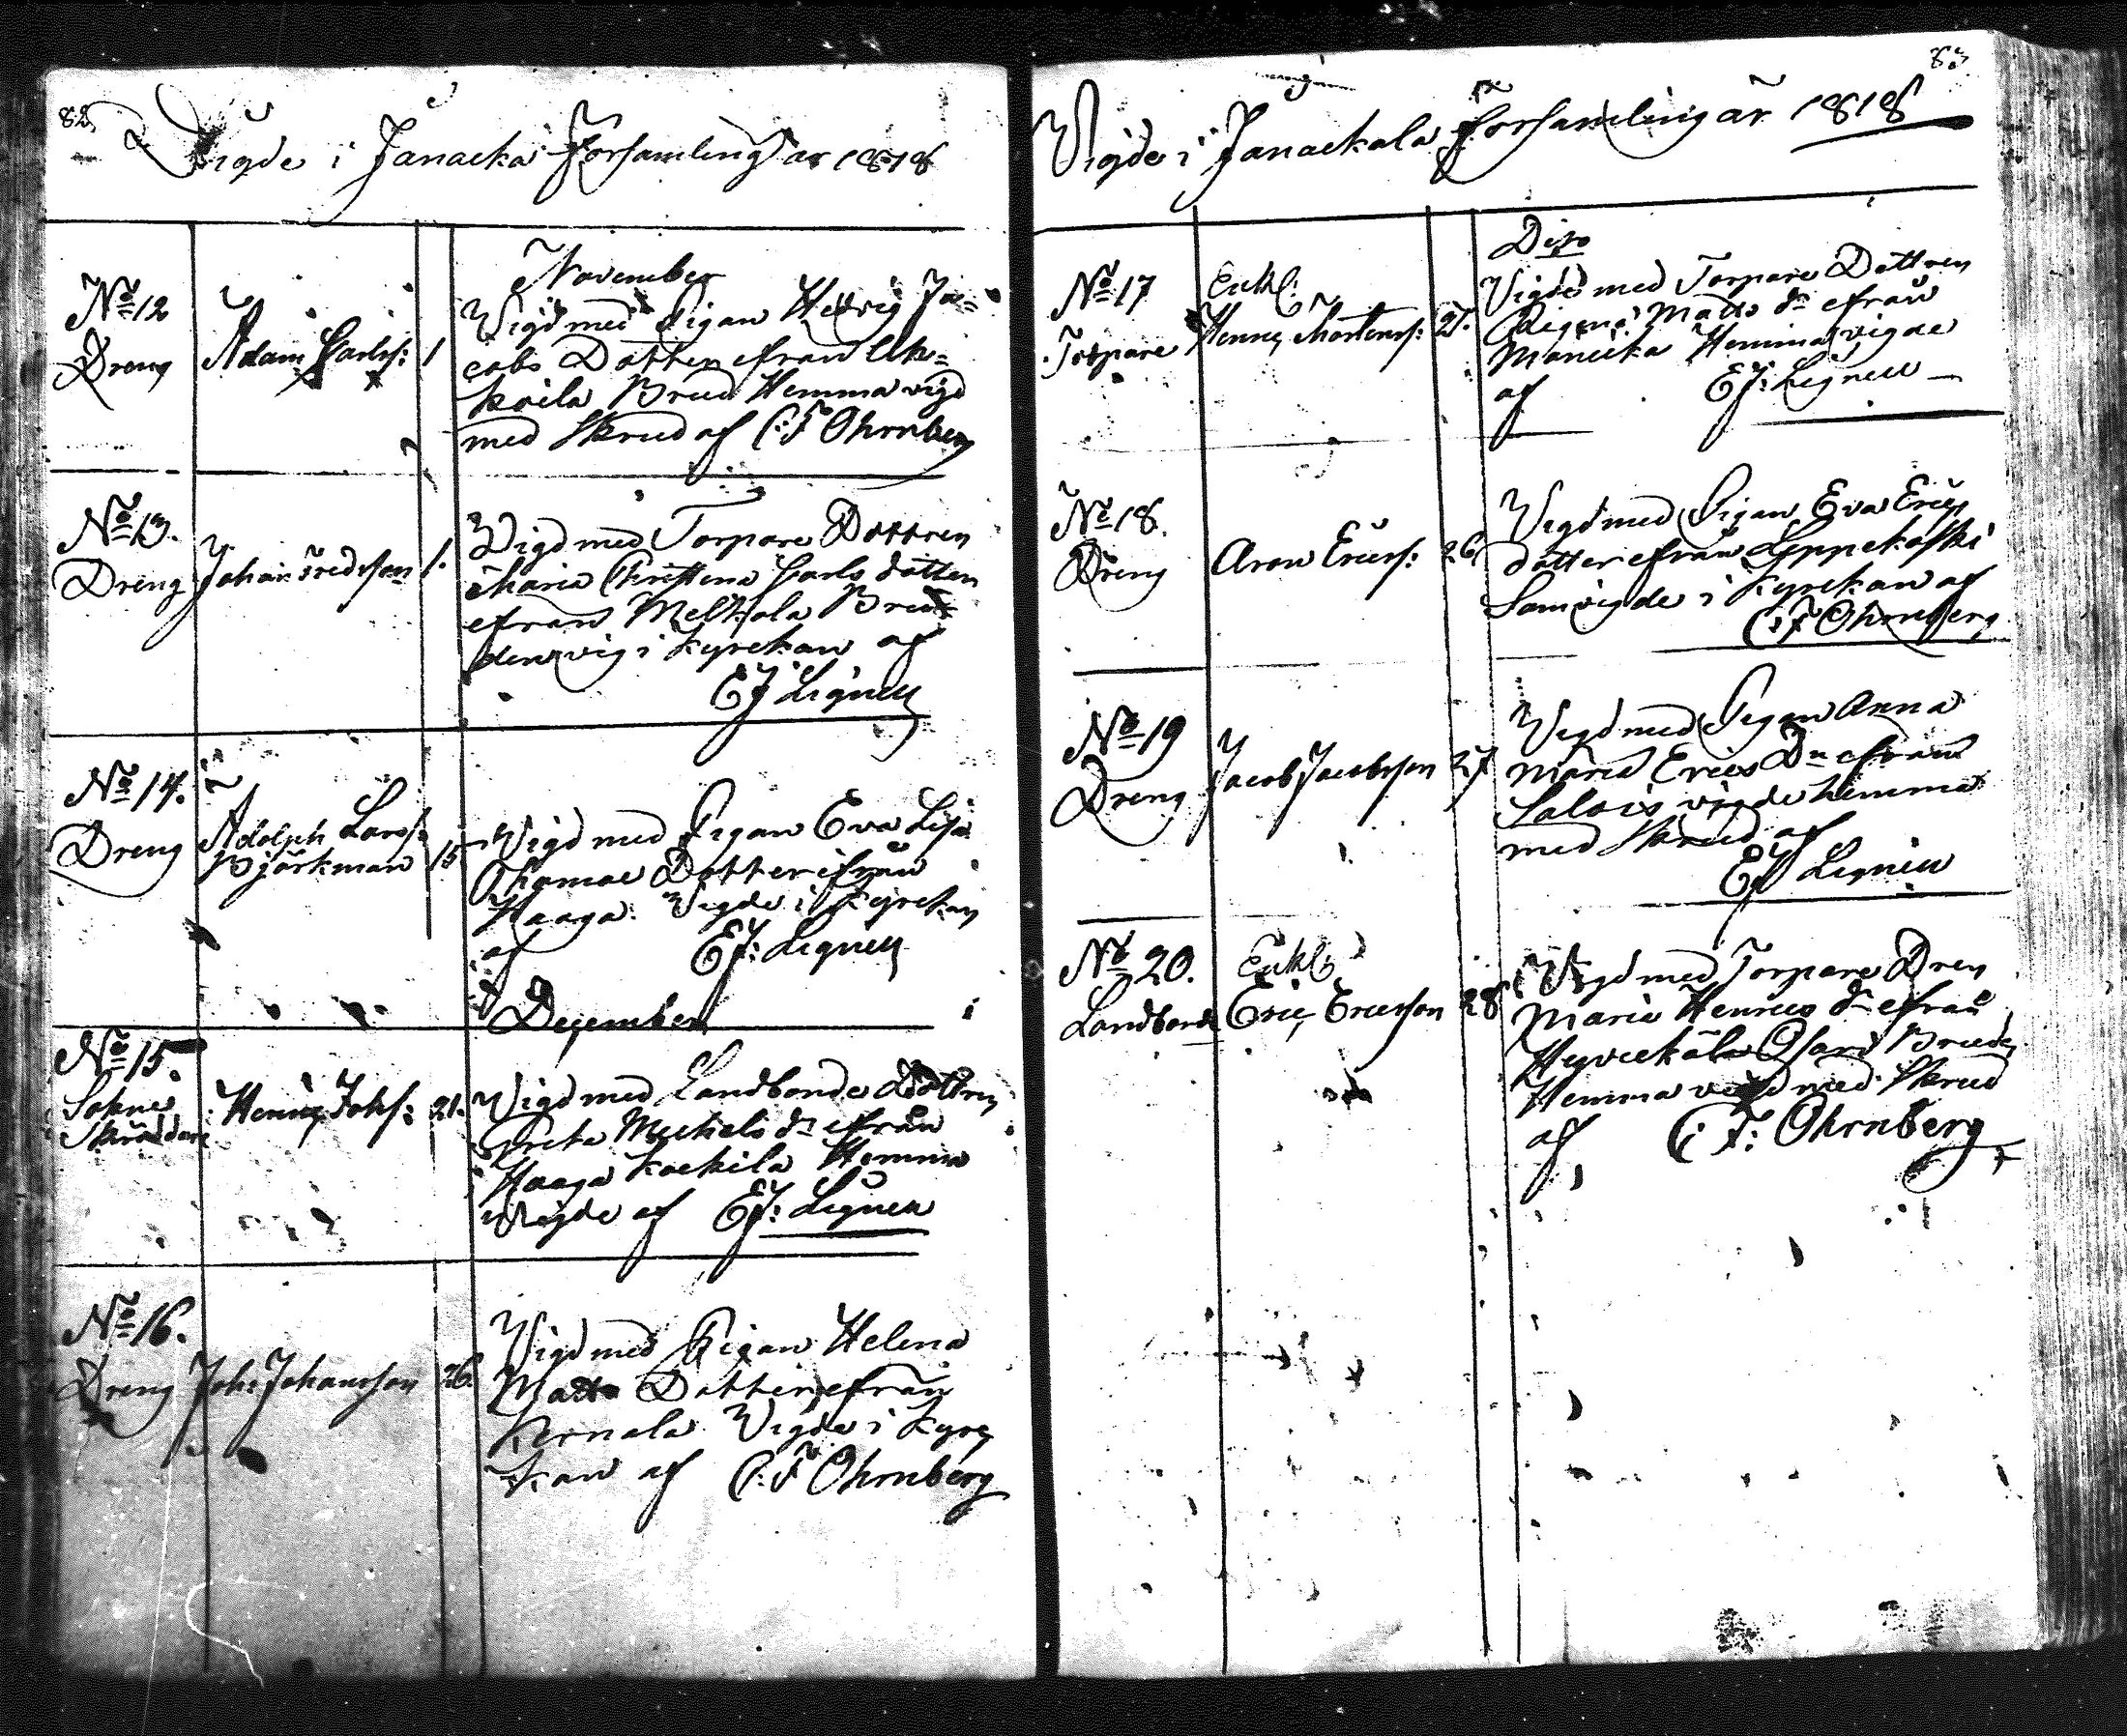 82
Vigde i Janacka Församling år 1818
November
No 12
Dreng
Adam Carlss: 1
Vigd med Pigan Hedvig Ja=
cobs Dotter efrån
Brud Hemma vigd
med Skrud af C:F Ohrnberg
No 13.
Dreng
Johan Fredrsson 1.
Vigd med Torpare Dottren
Maria Christina Carls dotter
efrån Melkola Bru=
den vig i Kyrekan af
EJ Lignell
No 14.
Dreng
Adolph Larss:
Björkman 15
Vigd med Pigan Eva Lisa
Thomae Dotter ifrån
Haaga. Vigde i Kyrekan
af EJ: Lignell
December
No 15.
Sokne
Skräddare
Henric Johs: 21.
Vigd med Landbonde Dottren
Greta Michels dr efrån
Haaga Kackila Hemma
Vigde af EJ: Lignell
No 16.
Dreng
Joh: Johansson 26.
Vigd med Pigan Helena
Matts Dotter efrån
Kernala Vigde i Kyre
kan af C:F Ohrnberg
83
Vigde i Janackala Församling år 1818
Dito
No 17
Torpare
Enkl:
Henric Mårtenss: 21.
Vigde med Torpare Dottren
Regina Matts dr efrån
Hemma vigde
af EJ: Lignell
No 18.
Dreng
Aron Ericss: 26
Vigd med Pigan Eva Erics
dotter efrån Leppekoski
Samvigde i Kyrekan af
C:F Ohrnberg
No 19
Dreng
Jacob Jacobsson 27
Vigd med Pigan Anna
Maria Erics Dr efrån
Salois vigde hemma
med Skrud af
EJ Lignell
No 20.
Landbonde
Enkl:
Eric Ericsson 28
Vigd med Torpare Dren
Maria Henrics dr efrån
Bruden
Hemma vigd med Skrud
af C:F: Ohrnberg